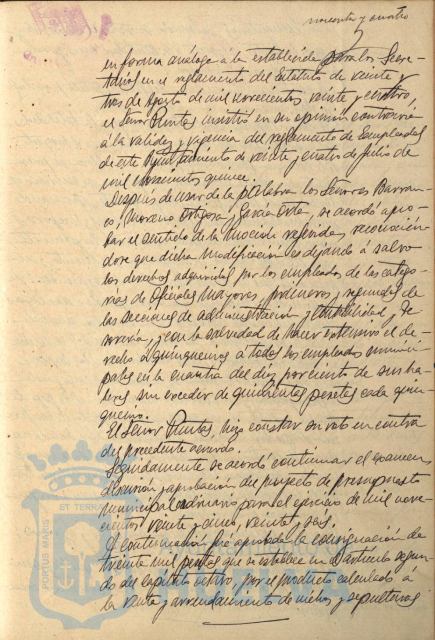 noventa y cuatro
en forma análoga á la establecida para los Secre-
tarios en el reglamento del Estatuto de veinte y
tres de Agosto de mil novecientos veinte y cuatro,
el Señor Puntas insistió en su opinión contraria
á la validez y vigencia del reglamento de Empleados
de este Ayuntamiento de veinte y cuatro de Julio de
mil novecientos quince.
Después de usar de la palabra los Señores Barran-
co, Moreno Ortega y García Orta, se acordó apro-
bar el sentido de la Moción referida, reconocién-
dose que dicha modificación es dejando á salvo
los derechos adquiridos por los empleados de las catego-
rías de Oficiales Mayores, primeros y segundos de
las Secciones de administración y contabilidad,
y con la salvedad de hacer extensivo el de-
recho á quinquenios á todos los empleados munici-
pales en la cuantía del diez por ciento de sus ha-
beres sin exceder de quinientas pesetas cada quin-
quenio.
El Señor Puntas, hizo constar su voto en contra
del precedente acuerdo.
Seguidamente se acordó continuar el examen,
discusión y aprobación del proyecto de presupuesto
municipal ordinario para el ejercicio de mil nove-
cientos veinte y cinco, veinte y seis.
A continuación fué aprobada la consignación de
treinta mil pesetas que se establece en el artículo segun-
do del Capítulo octavo, por el producto calculado á
la venta y arrendamiento de nichos y sepulturas
PORTUS MARIS ET TERRAE